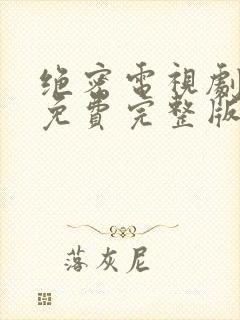 绝密電視劇
免費完整版
落灰尼